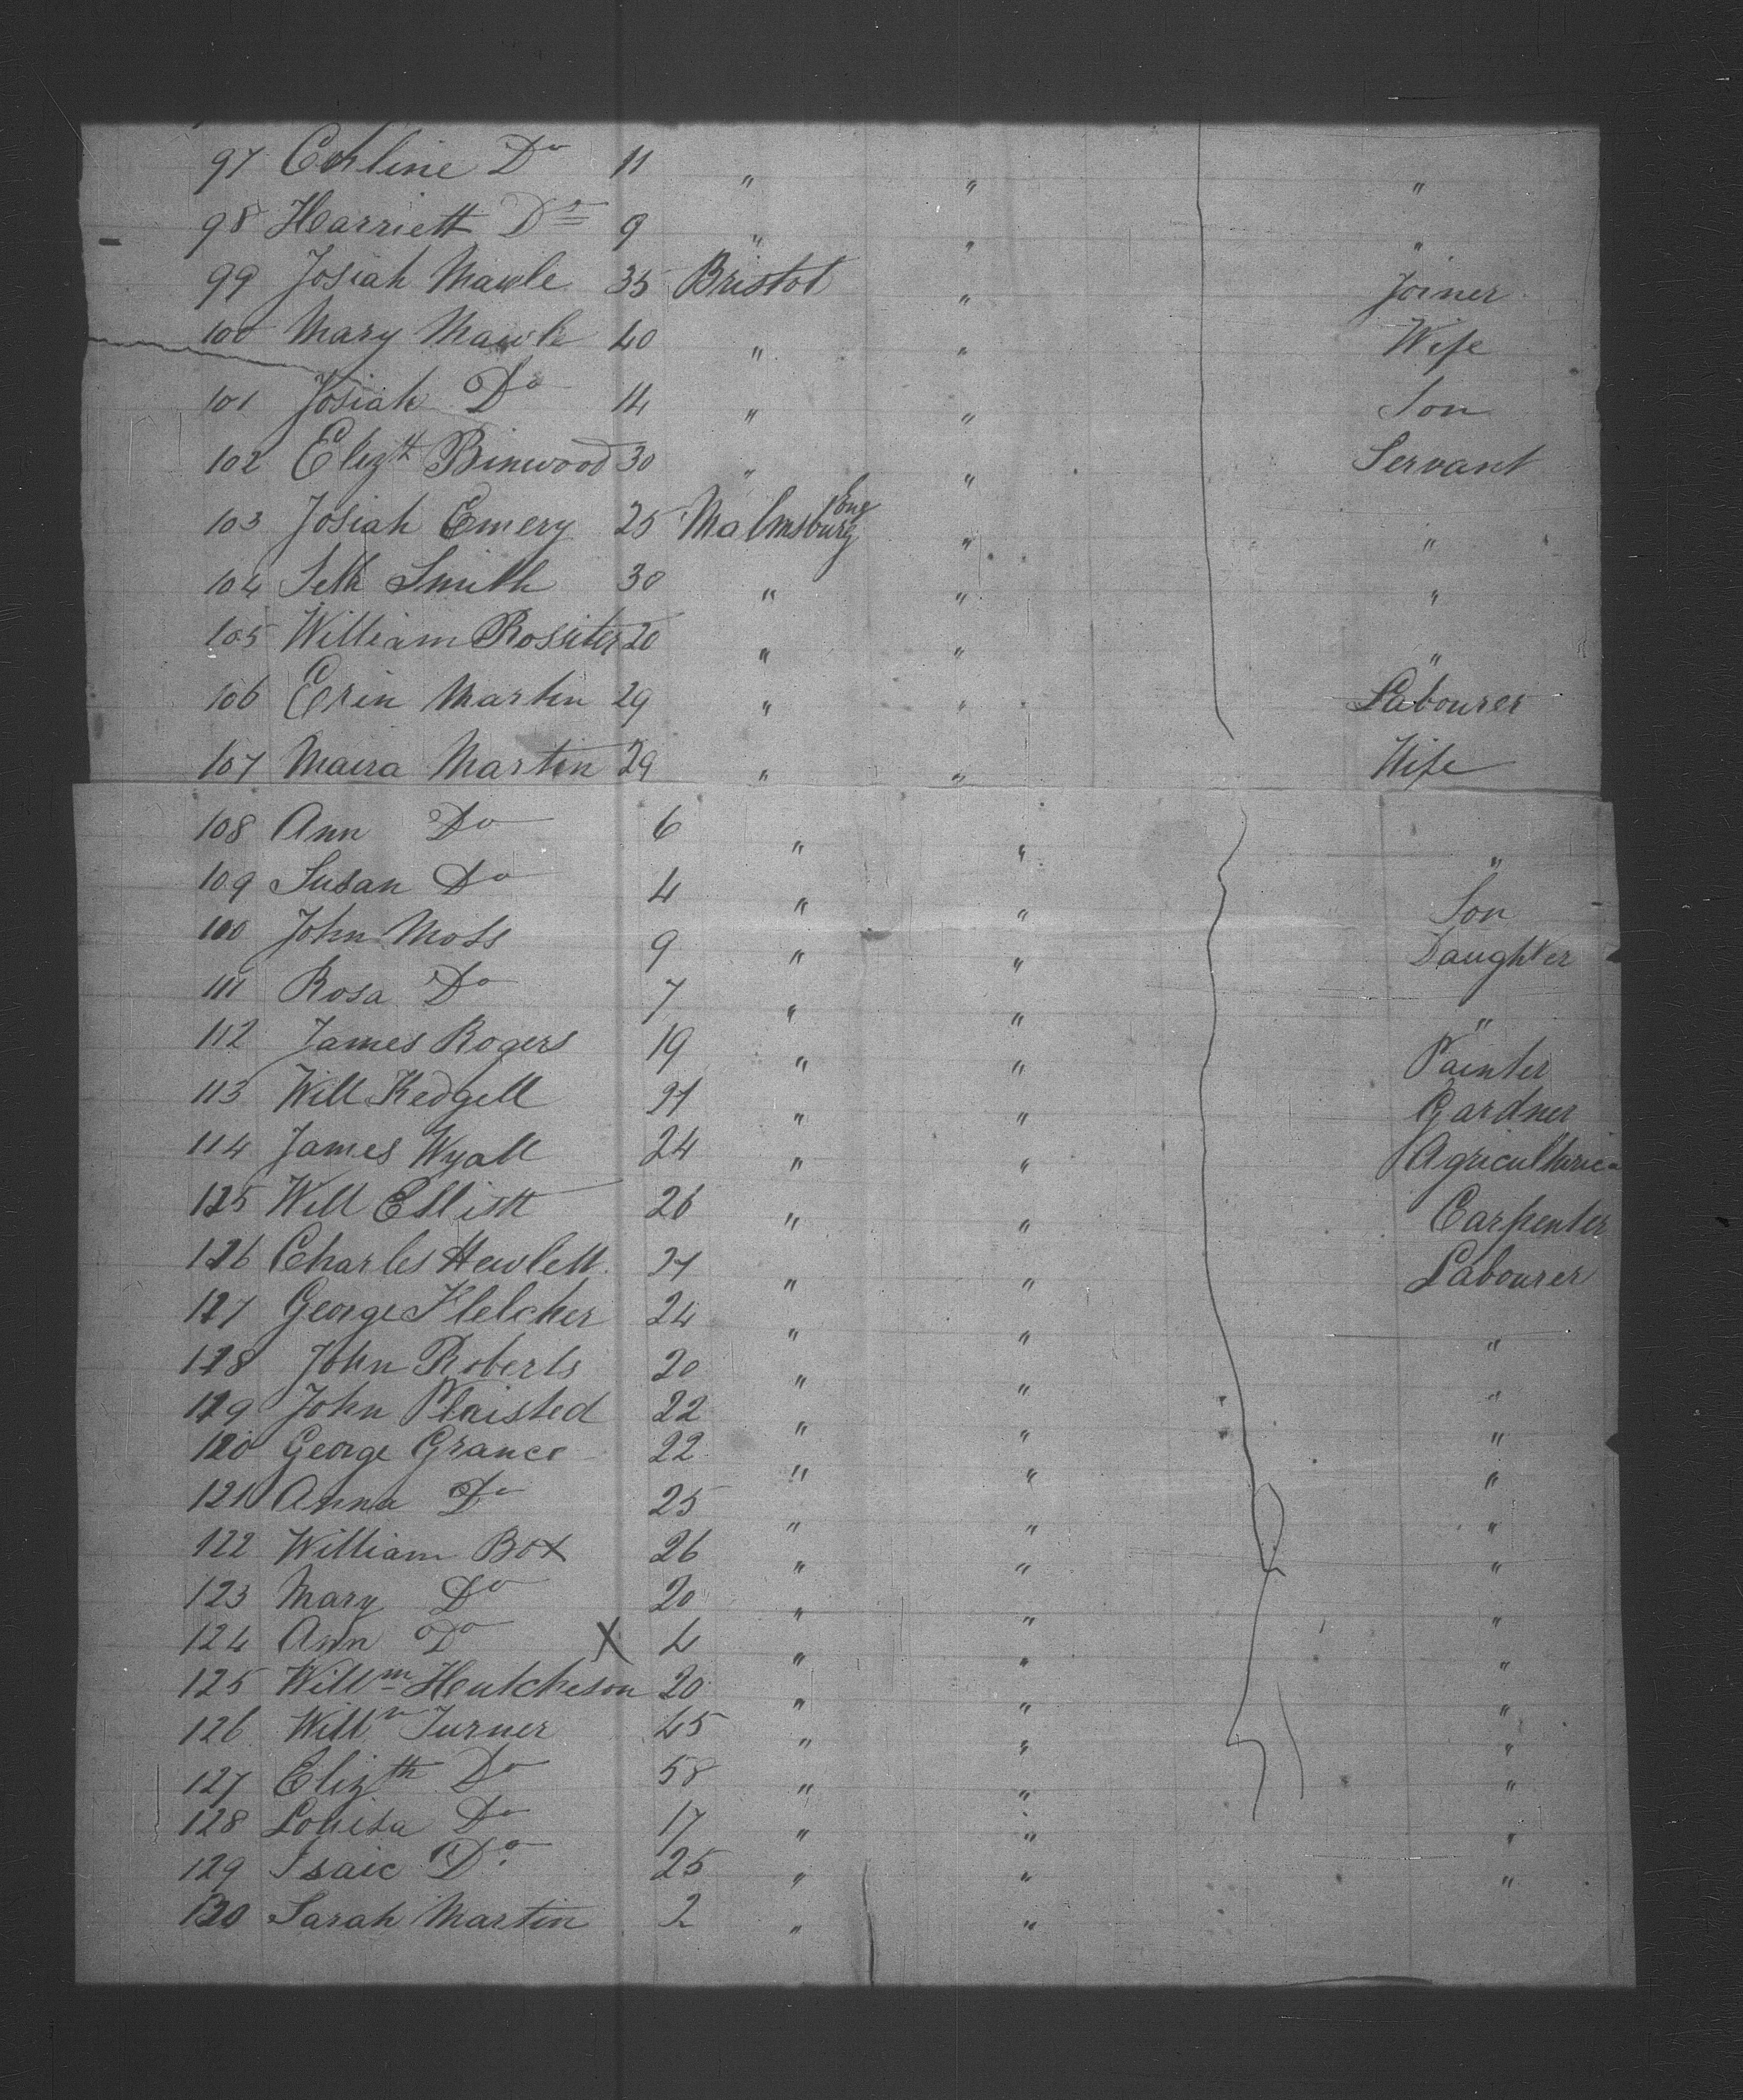 97 Corline Do 11 " " "
98 Harriett Do 9 " " "
99 Josiah Mawle 35 Bristol " Joiner
100 Mary Mawle 40 " " Wife
101 Josiah Do 14 " " Son
102 Elizth Binwood 30 " " Servant
103 Josiah Emery 25 Malmsbury Eng " "
104 Seth Smith 30 " " "
105 William Rossiter 20 " " "
106 Erin Martin 29 " " Labourer
107 Maira Martin 29 " " Wife
108 Ann Do 6 " " "
109 Susan Do 4 " " Son
110 John Moss 9 " " Daughter
111 Rosa Do 7 " " "
112 James Rogers 19 " " Painter
113 Will Kedgell 21 " " Gardner
114 James Wyatt 24 " " Agricultur
115 Will Elliott 26 " " Carpenter
116 Charles Hewlett 27 " " Labourer
117 George Fletcher 24 " " "
118 John Roberts 20 " " "
119 John Plaisted 22 " " "
120 George Grance 22 " " "
121 Anna Do 25 " " "
122 William Box 26 " " "
123 Mary Do 20 " " "
124 Ann Do X 4 " " "
125 Willm Hutcheson 20 " " "
126 Willm Turner 45 " " "
127 Elizth Do 58 " " "
128 Louisa Do 17 " " "
129 Isaic Do 25 " " "
130 Sarah Martin 2 " "